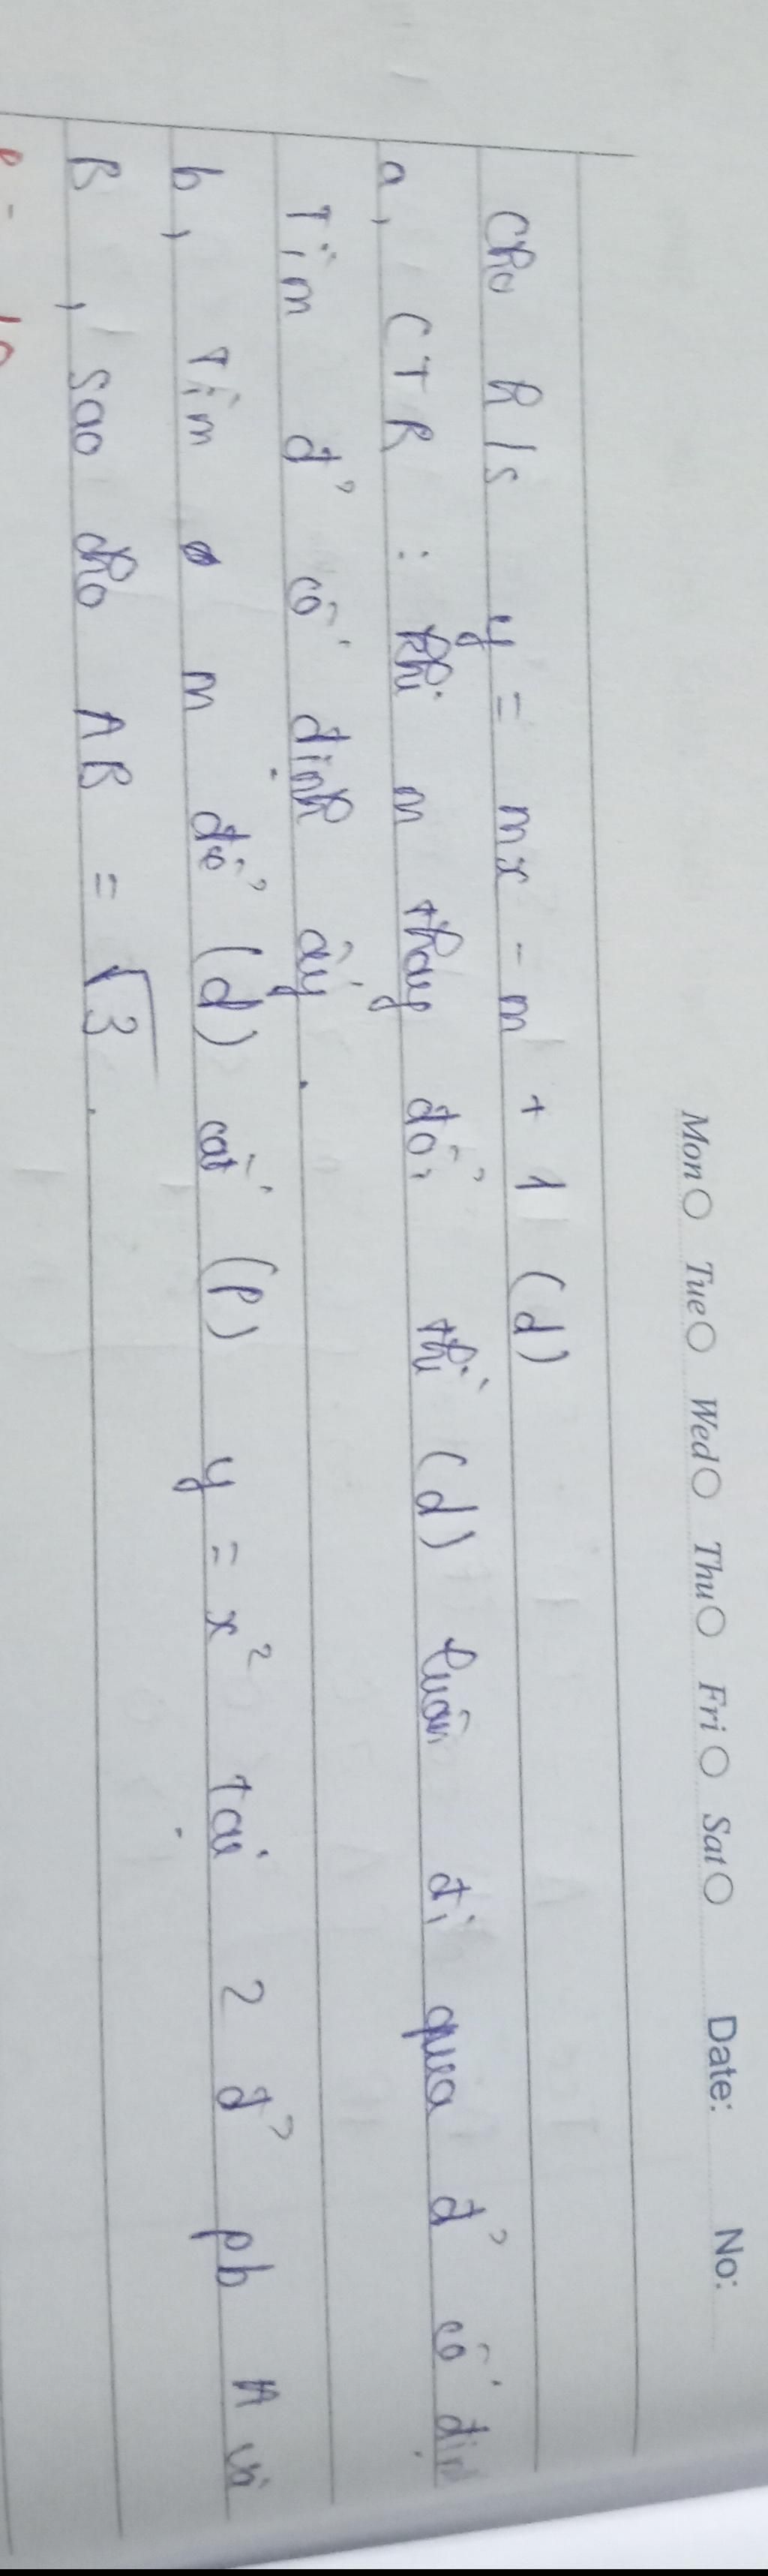 Mon Tue Wed Thu Fri Sat Date: No:
Cho h/s y = mx - m + 1 (d)
a, CTR : khi m thay đổi thì (d) luôn đi qua đ' cố định
Tìm đ' cố định ấy.
b, Tìm m để (d) cắt (P) y = x² tại 2 đ' pb A và
B, sao cho AB = √3.